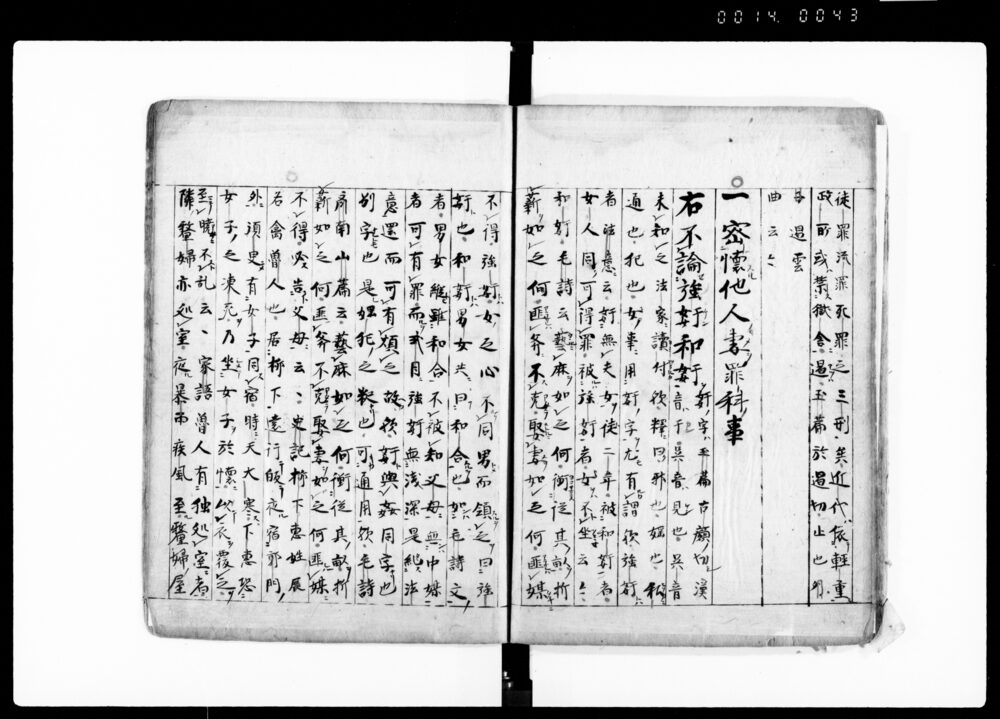 0014.0043
徒罪流罪死罪之三刑矣近代依輕重
政所或禁獄舎遏玉篇於遏切止也
遏雲
曲云々
一密懐他人妻罪科事
右不論強奸和奸奸字玉篇古顔切漢
音于呉音見也呉音
未知之法家讀付欤釋曰邪也婬也私
通也犯也女事用奸字尤有謂欤強奸
者法意云奸無夫女徒二年被和奸者
女人同可得罪被強奸者女不坐云々
和奸毛詩云藝麻如之何衡從其畝析
薪如之何匪斧不克娶妻如之何匪媒
不得強奸女之心不同男而領之曰強
奸也和奸男女共曰和合也如毛詩文
者男女雖和合不被知父母無中媒
者可有罪而式目強奸無浅深是絶法
意還而可有煩之故欤奸與姦同字也
別字也是婬犯之歟也可通用欤毛詩
齊南山篇云藝麻如之何衡從其畝析
薪如之何匪斧不克娶妻如之何匪媒
不得必告父母云々史記柳下惠姓展
名禽魯人也居柳下遠行皈夜宿郭門
外須臾有女子同宿時天大寒下惠恐
女子之凍死乃坐女子於懐以衣覆之
至曉不乱云々家語魯人有独処室者
隣釐婦亦処室夜暴雨疾風至釐婦屋